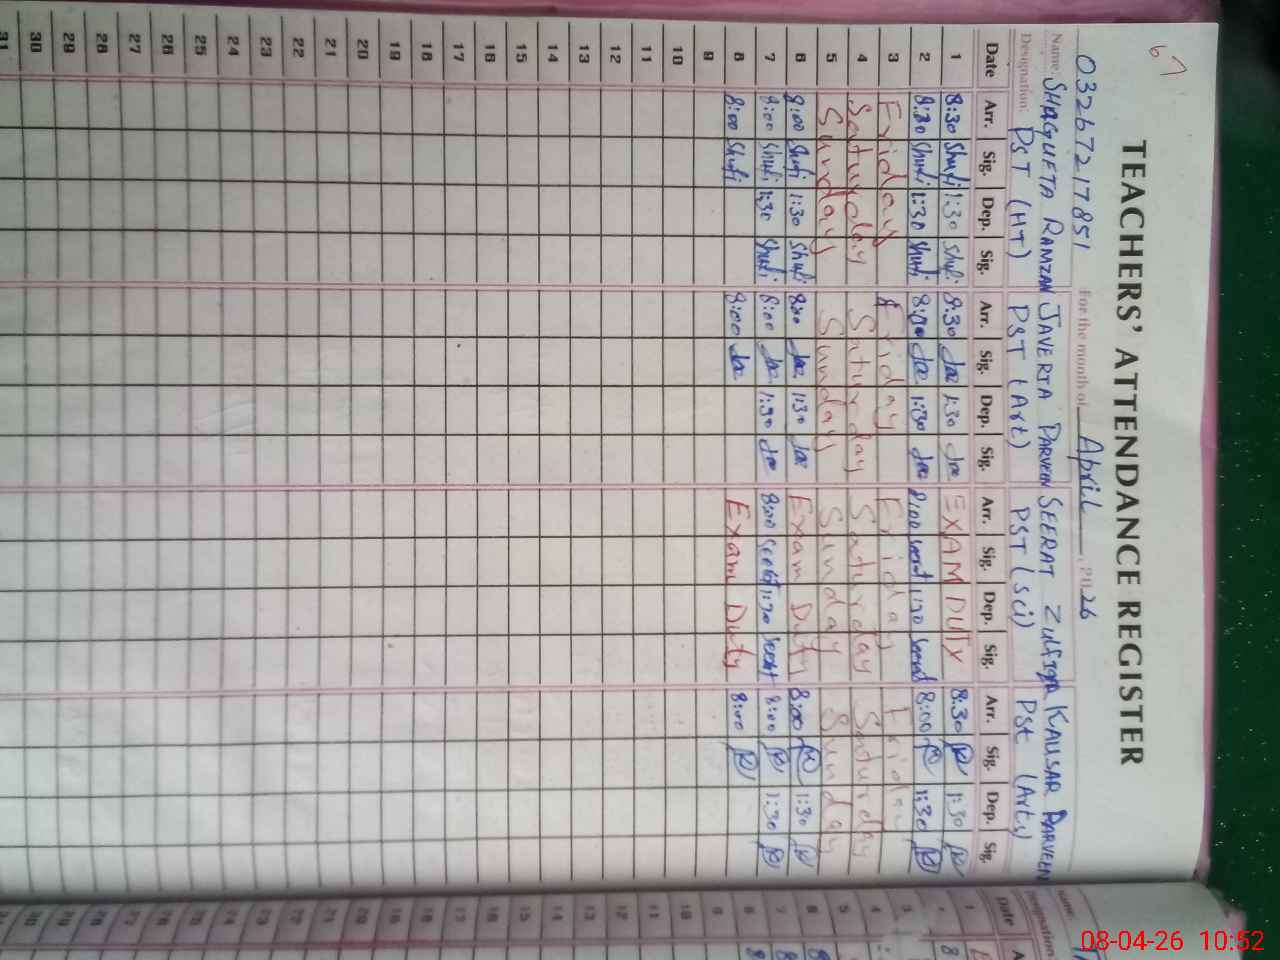 67
TEACHERS' ATTENDANCE REGISTER
03267217851 For the month of April, 2026
Name: SHAGUFTA RAMZAN JAVERIA PARVEEN SEERAT ZULFIQA KAUSAR PARVEEN
Designation: PST (HT) PST (Art) PST (Sci) PSt (Arts)
Date Arr. Sig. Dep. Sig. Arr. Sig. Dep. Sig. Arr. Sig. Dep. Sig. Arr. Sig. Dep. Sig.
1 8:30 1:30 8:30 1:30 EXAM DUTY 8:30 1:30
2 8:30 1:30 1:30 8:00 Seerat 1:30 Seerat 8:00 1:30
3 Friday Friday Friday Friday
4 Saturday Saturday Saturday Saturday
5 Sunday Sunday Sunday Sunday
6 8:00 1:30 1:30 Exam Duty 8:00 1:30
7 8:00 1:30 8:00 1:30 8:00 Seerat 1:30 Seerat 8:00 1:30
8 8:00 8:00 Exam Duty 8:00
9
10
11
12
13
14
15
16
17
18
19
20
21
22
23
24
25
26
27
28
29
30
31
Name:
Designation:
Date
08-04-26 10:52